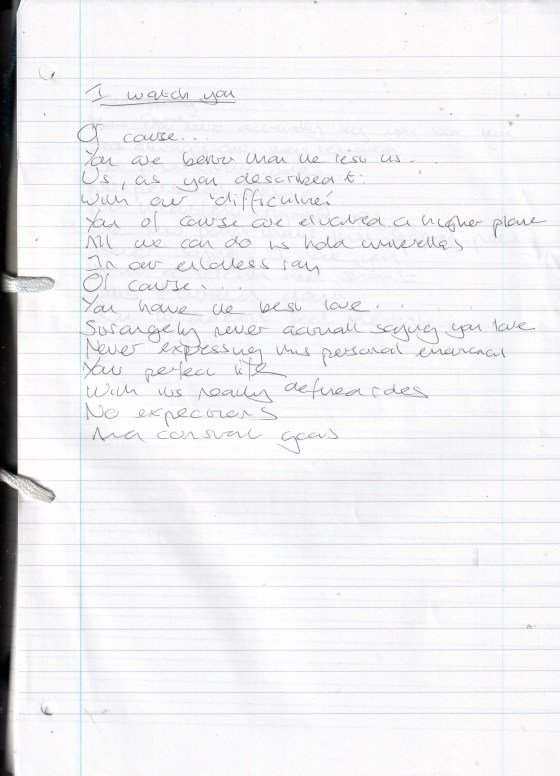 I watch you
Of cause...
You are better than the rest us..
Us, as you described it:
With our 'difficulties'
You of cause are elivated a higher plane
All we can do is hold umbrellas
In our endless rain
Of cause....
You have the best love...
Strangely never actually saying you love
Never expressing this personal emotional
Your perfect life
With its really defined sides
No expections
And constant goals